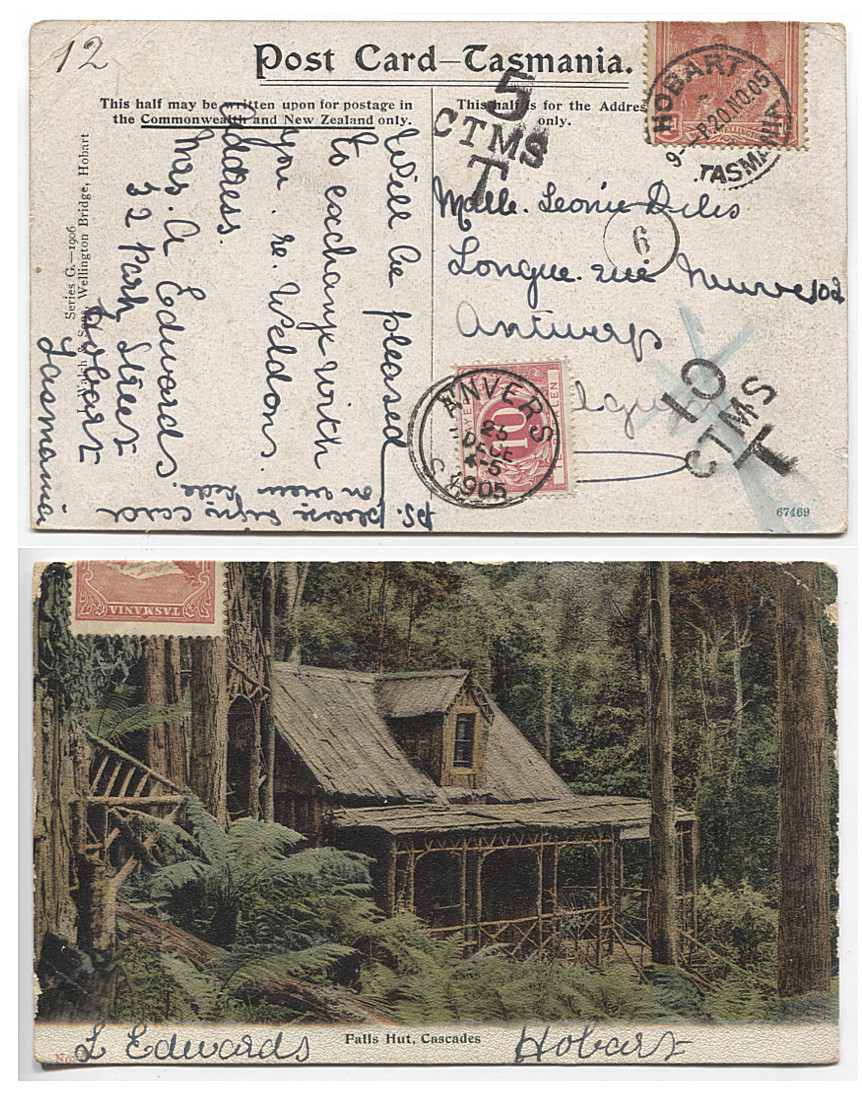 12
Post Card—Tasmania.
This half may be written upon for postage in
the Commonwealth and New Zealand only.
This half is for the Address
only.
5
CTMS
T
HOBART
9- P 20.NO.05
TASMANIA
Will be pleased
to exchange with
you. re. Weldons.
address.
Mrs. A Edwards
32 Park Street
Hobart
Tasmania
PS. please sign card
on view side.
Series G.—1906
J. Walch & Sons, Wellington Bridge, Hobart
Melle. Leonie Dilis
Longue rue Neuve 102
Antwerp
6
10
CTMS
T
ANVERS
25
DECE
4-5
1905
10
67469
TASMANIA
Falls Hut, Cascades
No.
L Edwards
Hobart